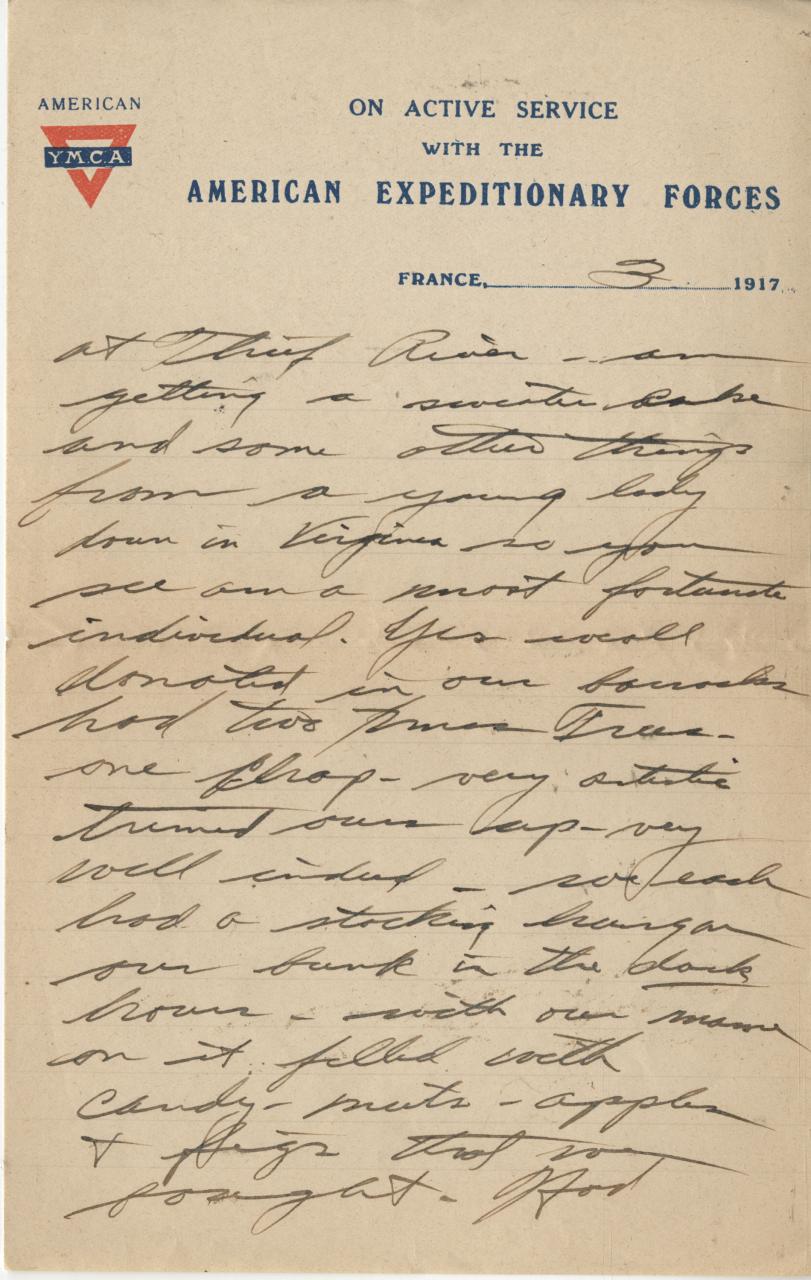 AMERICAN
Y.M.C.A.
ON ACTIVE SERVICE
WITH THE
AMERICAN EXPEDITIONARY FORCES
FRANCE, 3 1917
at Thief River - am
getting a sweater cake
and some other things
from a young lady
down in Virginia so you
see am a most fortunate
individual. Yes we all
donated in our barracks
had two Xmas Trees -
one chap - very artistic
trimed ours up - very
well indeed - so each
had a stocking hung on
our bunk in the dark
hours - with our name
on it filled with
candy - nuts - apples
& figs that we
bought. Had